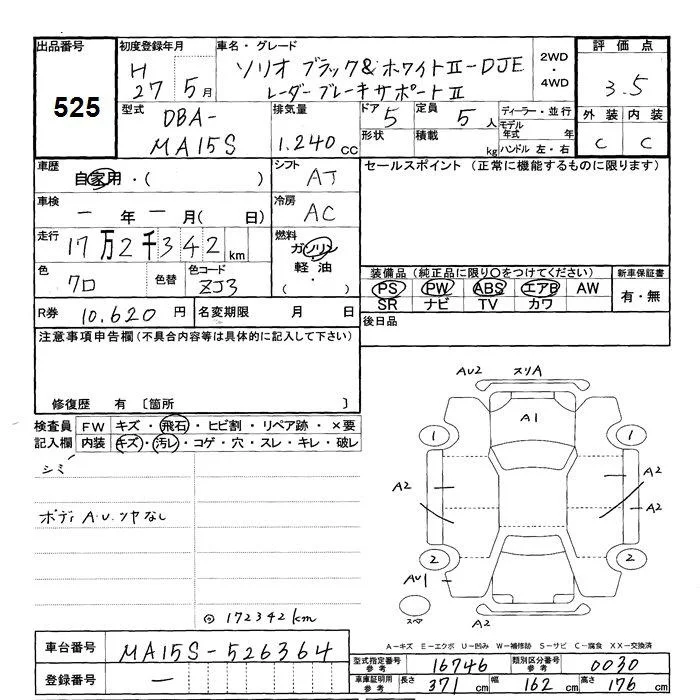 出品番号
525
初度登録年月
H
27 5月
車名・グレード
ソリオ ブラック&ホワイトII-DJE
レーダーブレーキサポートII
2WD
・
4WD
評価点
3.5
外装 内装
C C
型式
DBA-
MA15S
排気量
1.240cc
ドア 5
定員 5人
形状
積載 kg
ディーラー・並行
モデル年式 年
ハンドル 左・右
車歴
自家用・( )
シフト
AT
セールスポイント(正常に機能するものに限ります)
車検
一年一月( 日)
冷房
AC
走行
17万2千342km
燃料
ガソリン
軽油
・
( )
色
クロ
色替
色コード
ZJ3
装備品(純正品に限り○をつけてください)
PS PW ABS エアB AW
SR ナビ TV カワ
新車保証書
有・無
R券 10.620円
名変期限 月 日
後日品
注意事項申告欄(不具合内容等は具体的に記入して下さい)
修復歴 有 〔箇所 〕
検査員
記入欄
FW キズ・飛石・ヒビ割・リペア跡・×要
内装 キズ・汚レ・コゲ・穴・スレ・キレ・破レ
シミ
ボディA.U.ツヤなし
◎172342km
AU2 スリA
A1
1 1
A2 A2
A2
2 2
AU1
スペア
A2
A-キズ E-エクボ U-凹み W-補修跡 S-サビ C-腐食 XX-交換済
車台番号 MA15S-526364
登録番号 —
型式指定番号
参考
16746
類別区分番号
参考
0030
車庫証明用
参考
長さ 371cm 幅 162cm 高さ 176cm